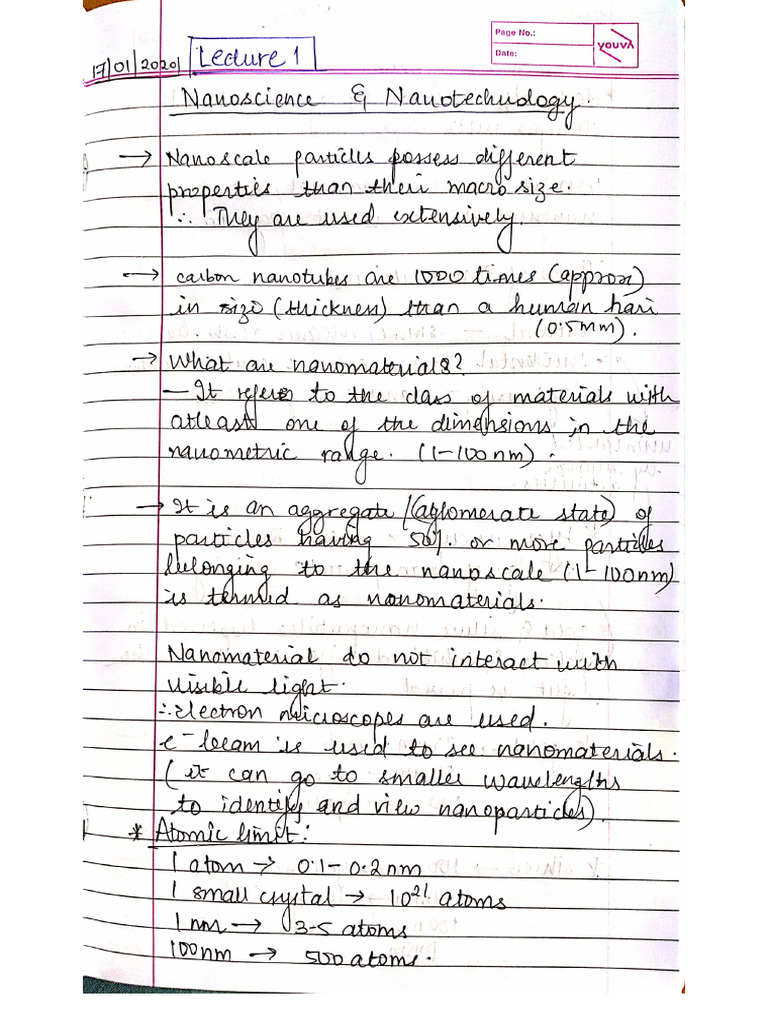 Page No.:
Date:
youvA
17/01/2020
Lecture 1
Nanoscience & Nanotechnology.
→ Nanoscale particles possess different
properties than their macro size.
∴ They are used extensively.
→ carbon nanotubes are 1000 times (approx)
in size (thickness) than a human hair
(0.5mm).
→ What are nanomaterials?
— It refers to the class of materials with
atleast one of the dimensions in the
nanometric range. (1-100nm).
→ It is an aggregate/(aglomerate state) of
particles having 50% or more particles
belonging to the nanoscale (1-100nm)
is termed as nanomaterials.
Nanomaterial do not interact with
visible light.
∴ electron microscopes are used.
e⁻ beam is used to see nanomaterials.
(it can go to smaller wavelengths
to identify and view nanoparticles).
* Atomic limit:
1 atom → 0.1-0.2nm
1 small crystal → 10²¹ atoms
1nm → 3-5 atoms
100nm → 500 atoms.